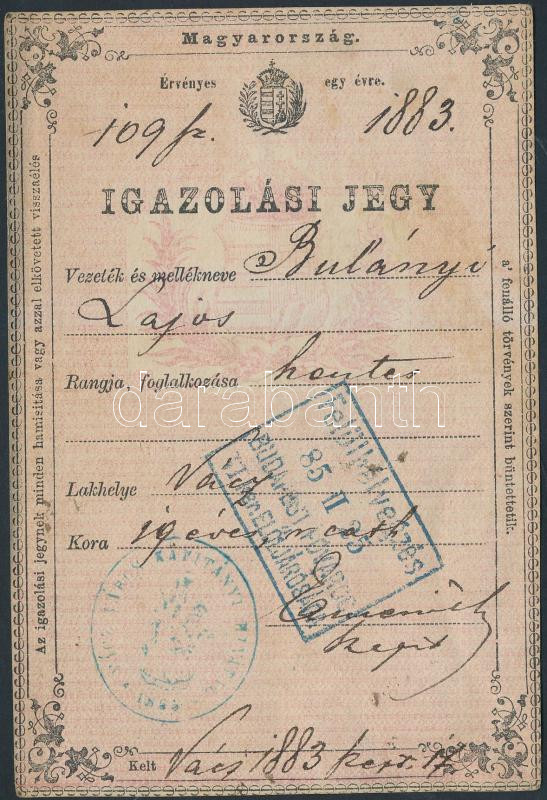 Magyarország.
Érvényes egy évre.
109 sz. 1883.
IGAZOLÁSI JEGY
Vezeték és mellékneve Bulányi
Lajos
Rangja, foglalkozása hentes
Lakhelye Vácz
Kora 19 éves
Kelt Vács 1883 sept. 17
Az igazolási jegynek minden hamisítása vagy azzal elkövetett visszaélés
a' fenálló törvények szerint büntettetik.
85 II 25
BUDAPEST
darabanth